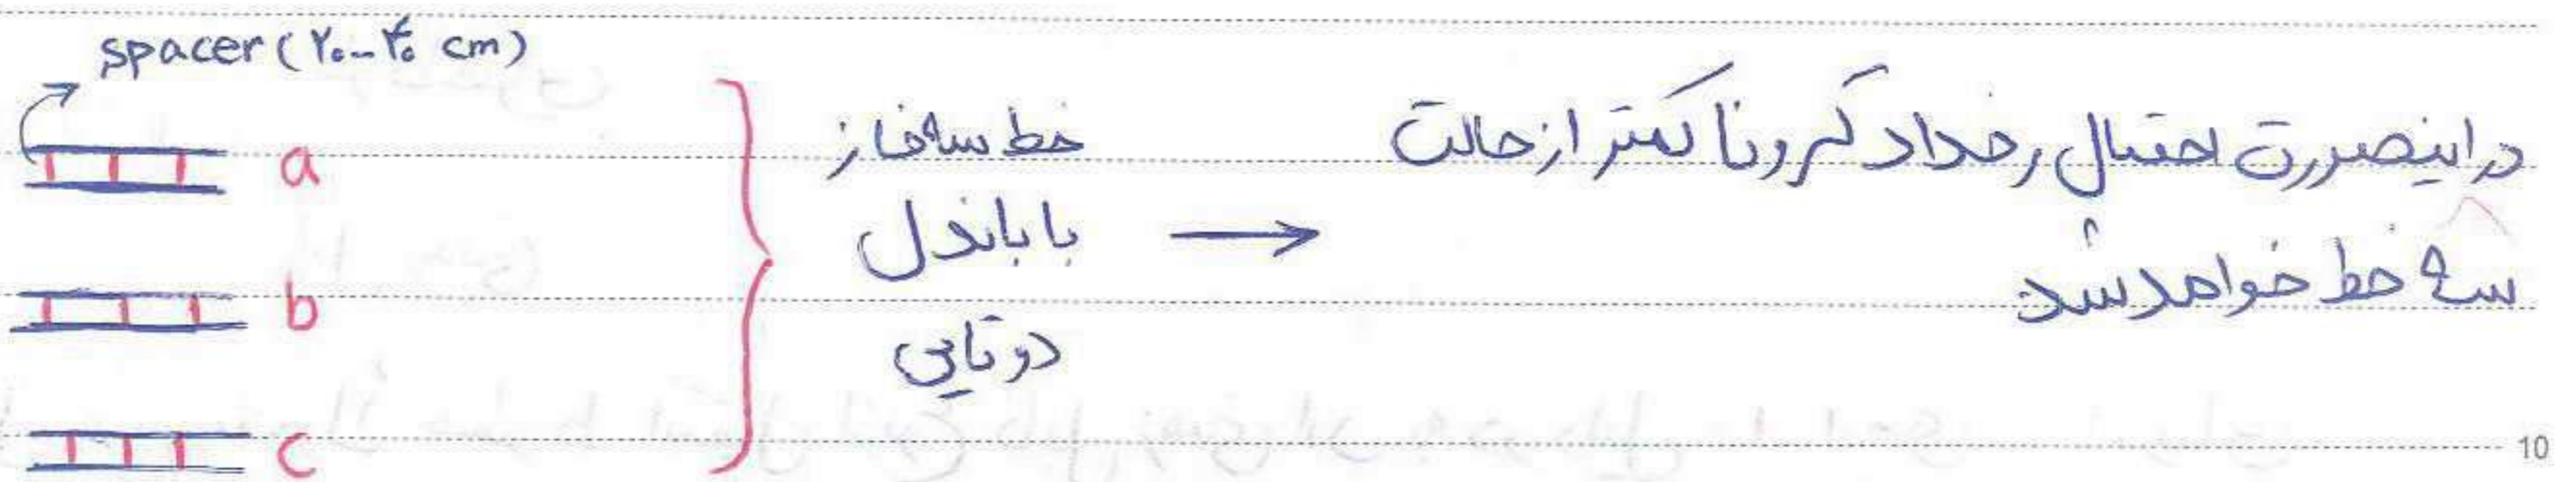 spacer (۲۰-۴۰ cm)
a
b
c
خط سه فاز
با باندل
دوتایی
در اینصورت احتمال رخداد کرونا کمتر از حالت
سه خط خواهد شد
10